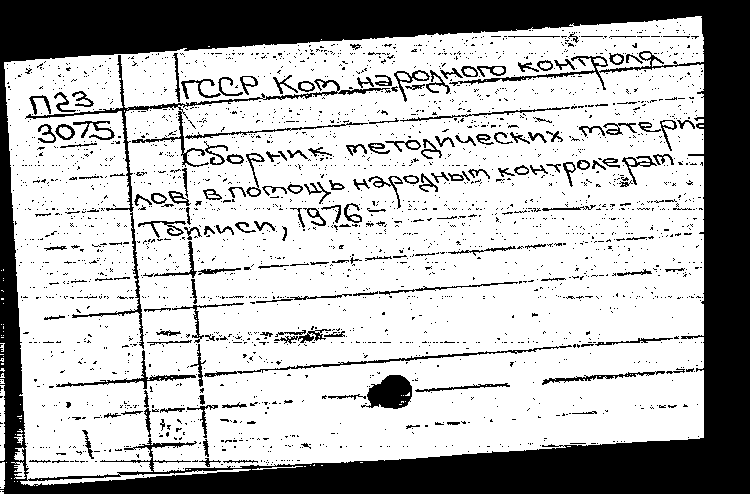 П23
3075
ГССР. Ком. народного контроля.
Сборник методических материа
лов в помощь народным контролерам. –
Тбилиси, 1976 –